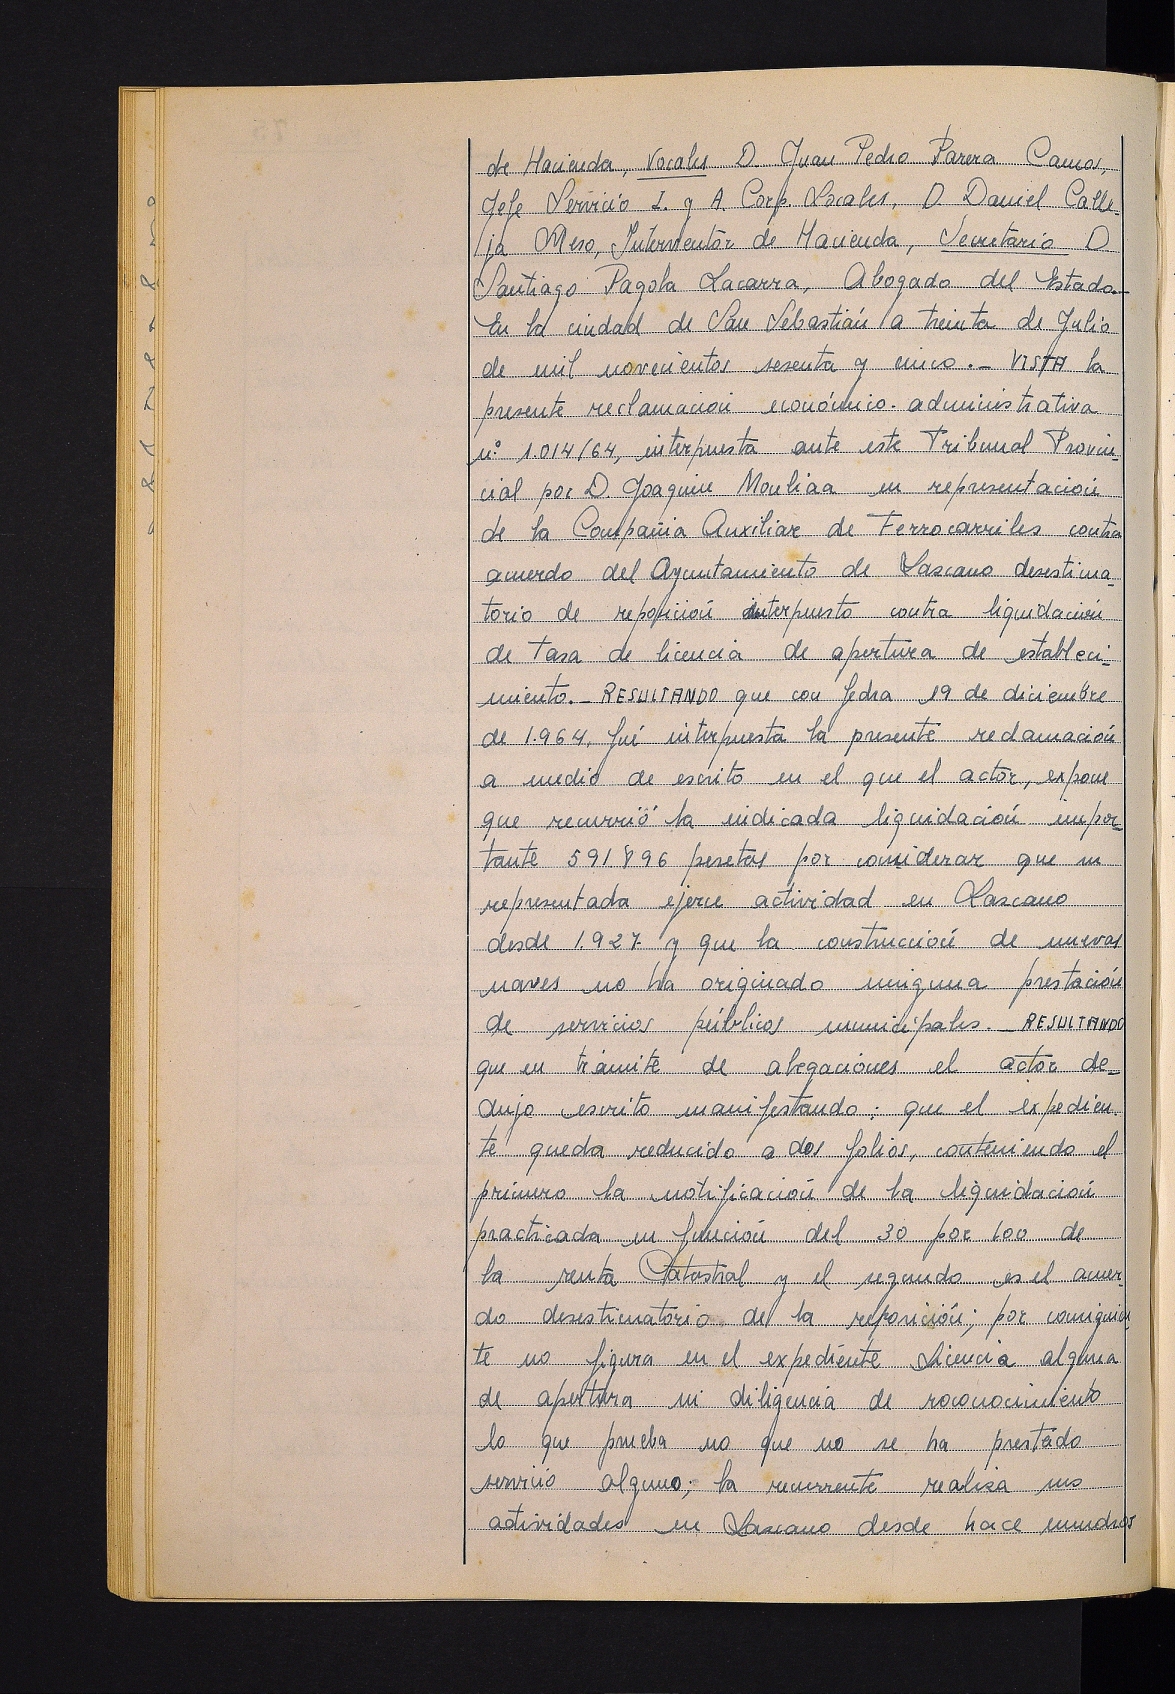 de Hacienda, Vocales D. Juan Pedro Parera Camos,
Jefe Servicio I. y A. Corp. Locales, D. Daniel Calle-
ja Meso, Interventor de Hacienda, Secretario D
Santiago Pagola Lacarra, Abogado del Estado.-
En la ciudad de San Sebastián a treinta de Julio
de mil novecientos sesenta y cinco.- VISTA la
presente reclamación económico-administrativa
nº 1.014/64, interpuesta ante este Tribunal Provin-
cial por D. Joaquin Mouliaa en representación
de la Compañia Auxiliar de Ferrocarriles contra
acuerdo del Ayuntamiento de Lazcano desestima-
torio de reposición interpuesto contra liquidación
de Tasa de licencia de apertura de estableci-
miento.- RESULTANDO que con fecha 19 de diciembre
de 1.964, fué interpuesta la presente reclamación
a medio de escrito en el que el actor, expone
que recurrió la indicada liquidación impor-
tante 591896 pesetas por considerar que su
representada ejerce actividad en Lazcano
desde 1.927 y que la construcción de nuevas
naves no ha originado ninguna prestación
de servicios públicos municipales.- RESULTANDO
que en trámite de alegaciones el actor de-
dujo escrito manifestando; que el expedien-
te queda reducido a dos folios, conteniendo el
primero la notificación de la liquidación
practicada en función del 30 por 100 de
la renta Catastral y el segundo es el acuer-
do desestimatorio de la reposición; por consiguien-
te no figura en el expediente Licencia alguna
de apertura ni diligencia de roconocimiento
lo que prueba no que no se ha prestado
servicio alguno; la recurrente realiza sus
actividades en Lazcano desde hace muchos